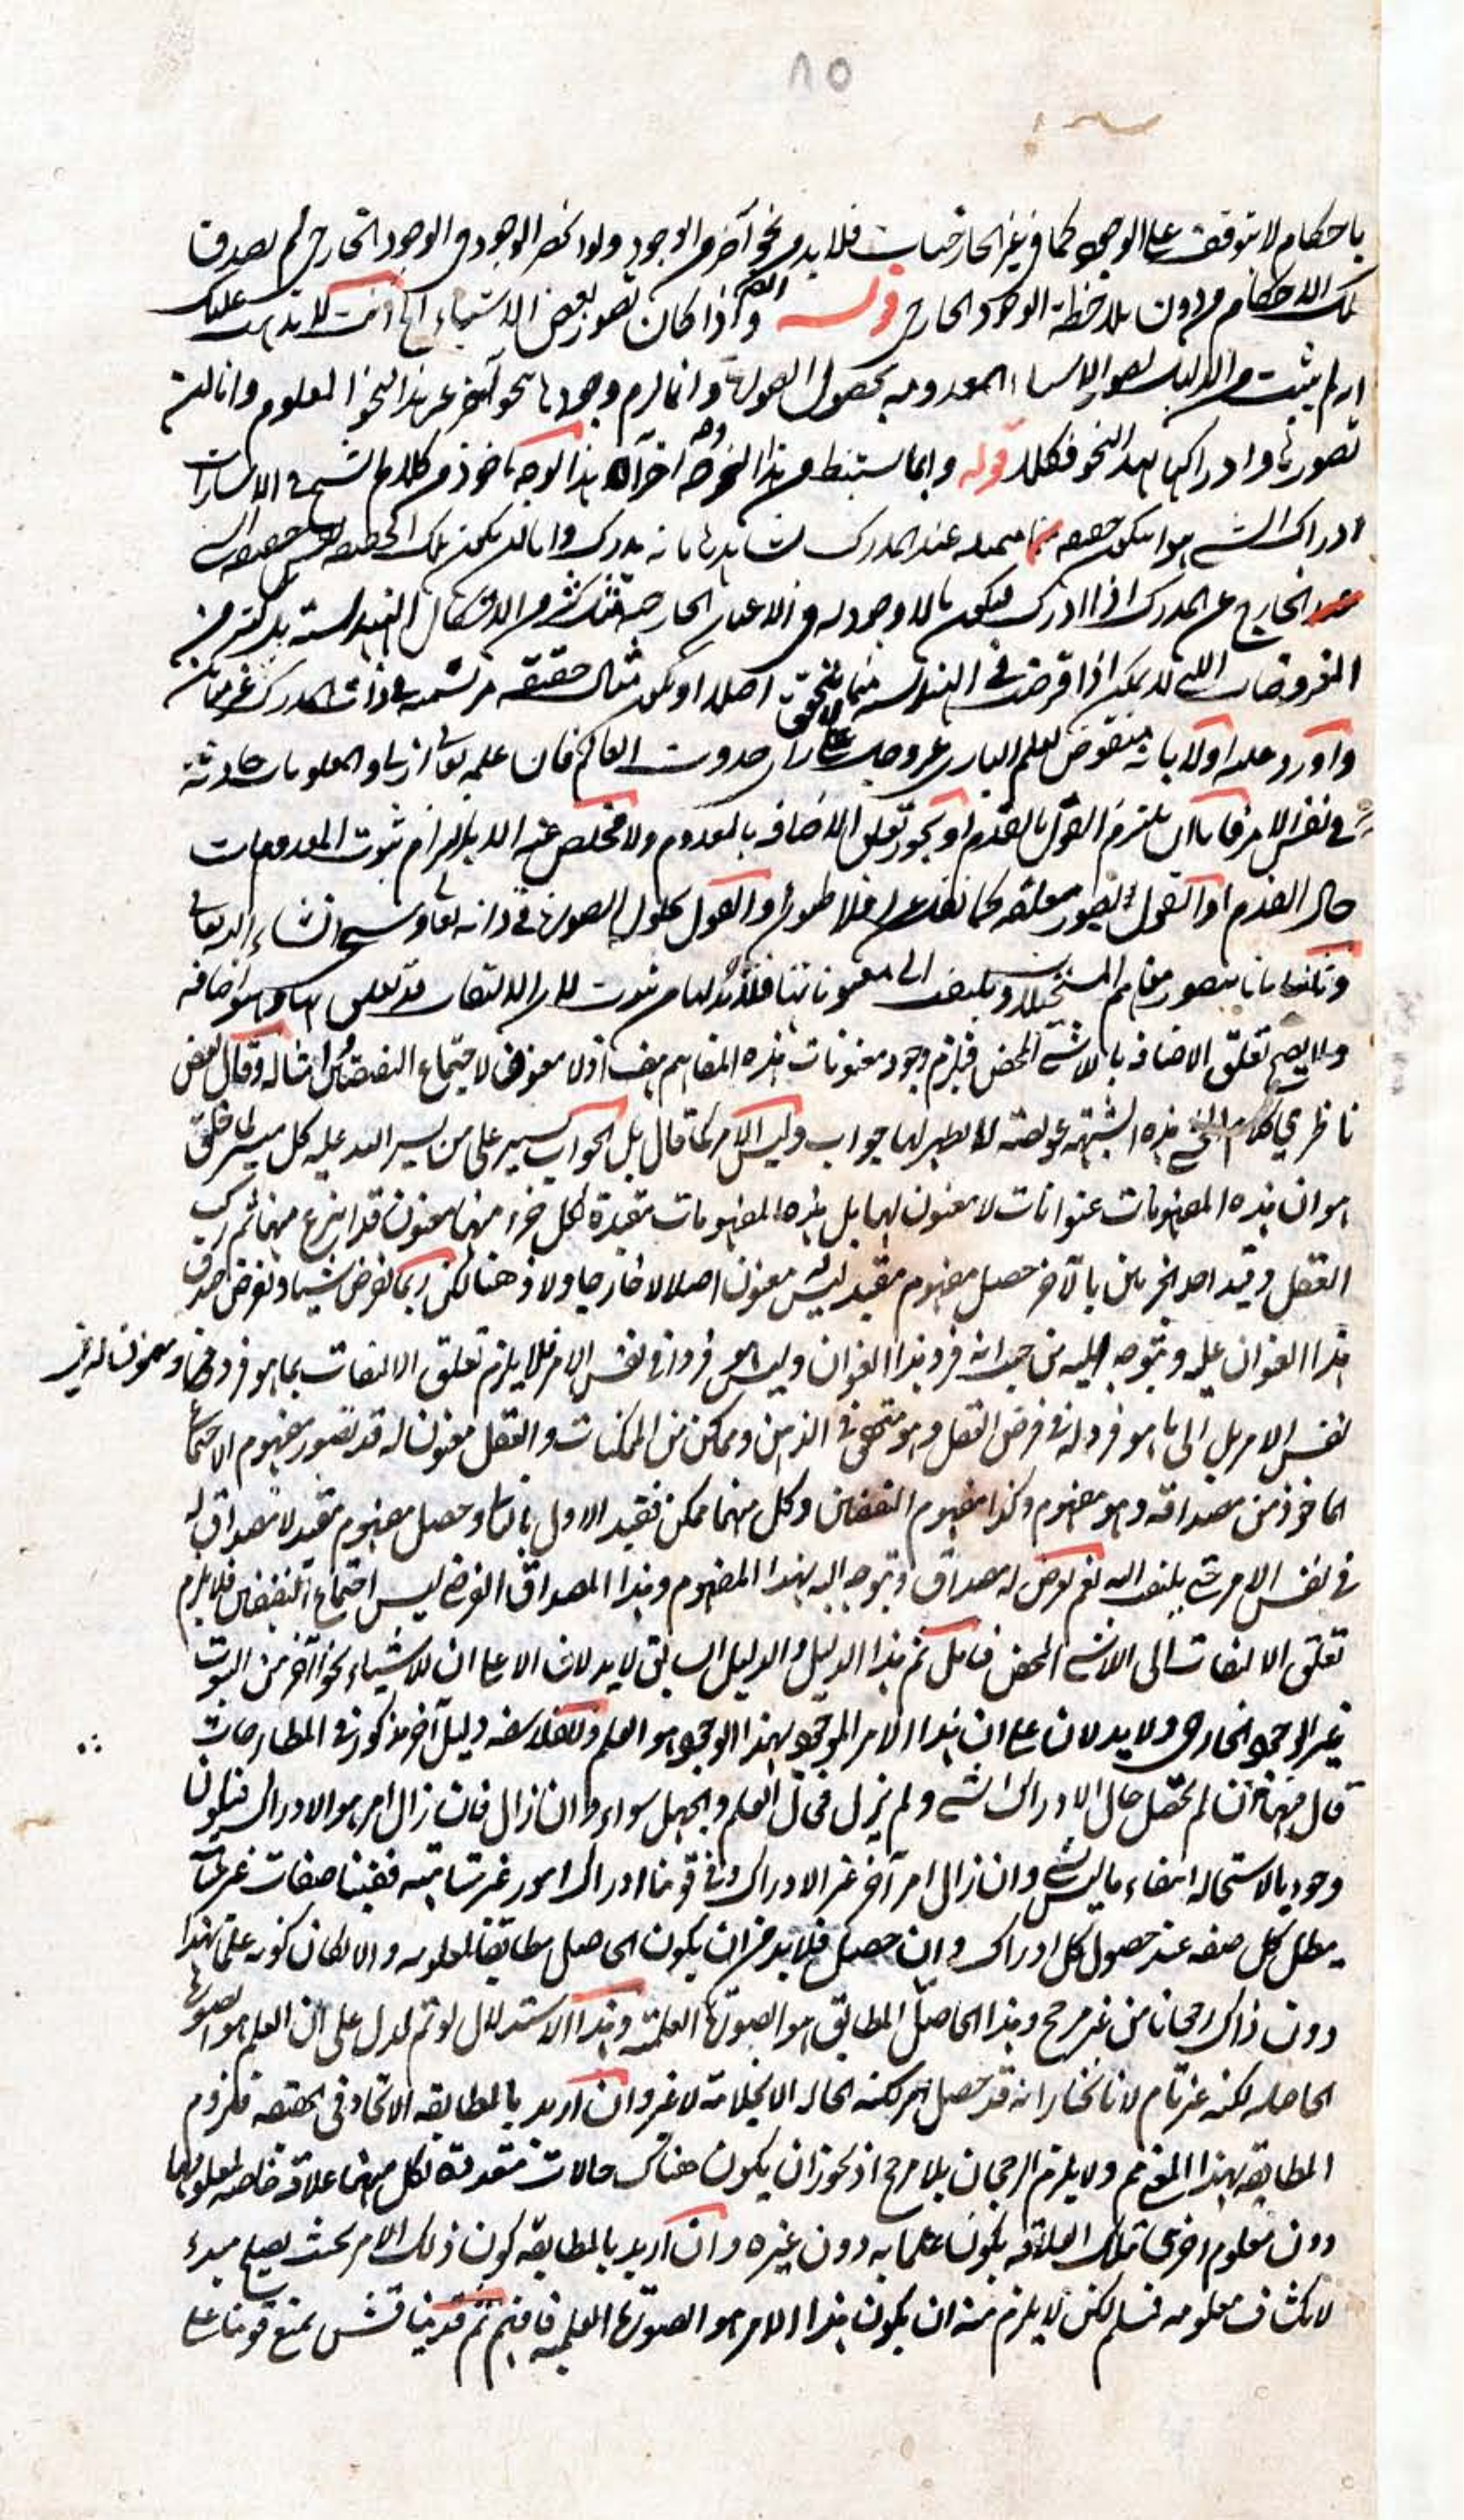 ٨٥
باحكام لا تتوقف على الوجود كما في غير الخارجيات فلا بد من نحو آخر من الوجود ولو انحصر الوجود في الوجود الخارجي لم يصدق
تلك الاحكام من دون ملاحظة الوجود الخارجي قوله واذا كان تصور بعض الاشياء الخ انت لا يذهب عليك
انه لم يثبت من الدليل تصور الاشياء المعدومة بحصول الصورة وانما لزم وجودها بنحو آخر غير هذا النحو المعلوم واما ان
تصورها وادراكها بهذا النحو فكلا قوله وانما يستنبط من هذا النحو وجه آخر آه هذا الوجه ماخوذ من كلام الشيخ في الاشارات
ادراك الشيء هو ان يكون حقيقته متمثلة عند المدرك يشاهدها ما به يدرك فاما ان يكون تلك الحقيقة نفس حقيقة الشيء
الخارج عن المدرك اذا ادرك فيكون ما لا وجود له في الاعيان الخارجية مثل كثير من الاشكال الهندسية بل كثير من
المفروضات التي لا يمكن اذا فرضت في الهندسة مما لا يتحقق اصلا او يكون مثال حقيقته مرتسمة في ذات المدرك غير مباين
واورد عليه اولا بانه منقوض بعلم الباري عز وجل على راي حدوث العالم فان علمه تعالى ازلي والمعلومات حادثة
في نفس الامر فاما ان يلتزم القول بالقدم او تجويز تعلق الاضافة بالمعدوم ولا مخلص عنه الا بالتزام ثبوت المعدومات
حال العدم او القول بصور معلقة كما نقل عن افلاطون او القول بحلول الصورة في ذاته تعالى وسيجيء ان شاء الله تعالى
وثانيا بانا نتصور مفاهيم المستحيلات ونلتفت الى معنوناتها فلا بد لها من ثبوت لان الالتفات قد تعلق بها وهو اضافة
ولا يصح تعلق الاضافة باللاشيء المحض فيلزم وجود معنونات هذه المفاهيم هف اذ لا معنون لاجتماع النقيضين وامثاله وقال بعض
ناظري كلام الشيخ هذه الشبهة عويصة لا يظهر لها جواب وليس الامر كما قال بل الجواب يسير على من يسر الله عليه كل ميسر لما خلق
هو ان هذه المفهومات عنوانات لا معنون لها بل هذه المفهومات مقيدة لكل جزء منها معنون قد انتزع منها ثم ركب
العقل وقيد احد الجزئين بالآخر حصل مفهوم مقيد ليس له معنون اصلا لا خارجا ولا ذهنا لكن ربما نفرض شيئا ونفرض صدق
هذا العنوان عليه ونتوجه اليه من حيث انه فرد هذا العنوان وليس هو فردا في نفس الامر فلا يلزم تعلق الالتفات بما هو فرد ومعنون له في
نفس الامر بل الى ما هو فرد له في فرض العقل وهو متحقق في الذهن وممكن من الممكنات والعقل قد تصور مفهوم الاجتماع
الماخوذ من مصداقه وهو مفهوم وكذا مفهوم النقيضين وكل منهما ممكن فقيد الاول بالثاني وحصل مفهوم مقيد لا مصداق له
في نفس الامر حتى يلتفت اليه نعم نفرض له مصداق ونتوجه اليه بهذا المفهوم وهذا المصداق الفرضي ليس اجتماع النقيضين فلا يلزم
تعلق الالتفات الى اللاشيء المحض فتامل ثم هذا الدليل والدليل السابق لا يدلان الا على ان للاشياء نحوا آخر من الثبوت
غير الوجود الخارجي ولا يدلان على ان هذا الامر الموجود بهذا الوجود هو العلم وللفلاسفة دليل آخر مذكور في المطارحات
قال فيها ان لم يحصل حال الادراك شيء ولم يزل فحال العلم والجهل سواء وان زال فان زال امر هو الادراك فيكون
وجوديا لاستحالة انتفاء ما ليس بشيء وان زال امر آخر غير الادراك وفي قوتنا ادراك امور غير متناهية ففينا صفات غير متناهية
يبطل كل صفة عند حصول كل ادراك وان حصل فلا بد من ان يكون الحاصل مطابقا للمعلوم والا لكان كونه علما بهذا
دون ذاك رجحانا من غير مرجح وهذا الحاصل المطابق هو الصورة العلمية وهذا الاستدلال لو تم لدل على ان العلم هو الصورة
الحاصلة لكنه غير تام لانا نختار انه قد حصل امر لكنه الحالة الانجلائية لا غير وان اريد بالمطابقة الاتحاد في الحقيقة فلزوم
المطابقة بهذا المعنى ثم ولا يلزم الرجحان بلا مرجح اذ يجوز ان يكون هناك حالات متعددة لكل منها علاقة خاصة لمعلومها
دون معلوم اخرى بتلك العلاقة يكون علما به دون غيره وان اريد بالمطابقة كون ذلك الامر بحيث يصلح مبدء
لانكشاف معلومه فمسلم لكن لا يلزم منه ان يكون هذا الامر هو الصورة العلمية فافهم ثم قد يناقش بمنع قوتنا على